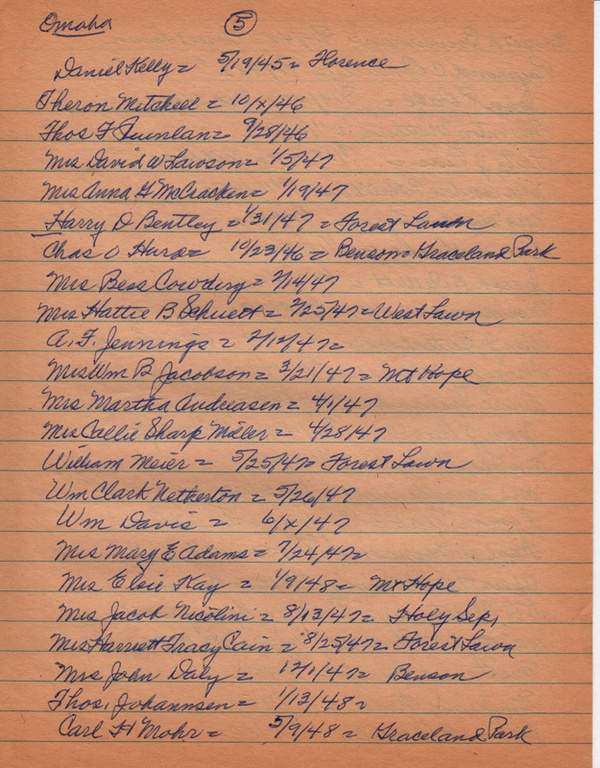 Omaha 5
Daniel Kelly = 5/19/45 = Florence
Theron Mitchell = 10/x/46
Thos F Quinlan = 9/28/46
Mrs David W Lawson = 1/5/47
Mrs Anna G McCracken = 1/19/47
Harry D Bentley = 1/31/47 = Forest Lawn
Chas O Hurd = 10/23/46 = Benson = Graceland Park
Mrs Bess Cowdery = 2/14/47
Mrs Hattie B Schuett = 2/25/47 = West Lawn
A. F. Jennings = 2/12/47 =
Mrs Wm B Jacobson = 3/21/47 = Mt Hope
Mrs Martha Andriasen = 4/1/47
Mrs Callie Sharp Miller = 4/28/47
William Meier = 5/25/47 = Forest Lawn
Wm Clark Netherton = 5/26/47
Wm Davis = 6/x/47
Mrs Mary E Adams = 7/24/47 =
Mrs Elsie Kay = 1/9/48 = Mt Hope
Mrs Jacob Nicolini = 8/13/47 = Holy Sep,
Mrs Harriett Tracy Cain = 8/25/47 = Forest Lawn
Mrs John Daly = 12/1/47 = Benson
Thos. Johannsen = 1/13/48 =
Carl H Mohr = 5/9/48 = Graceland Park